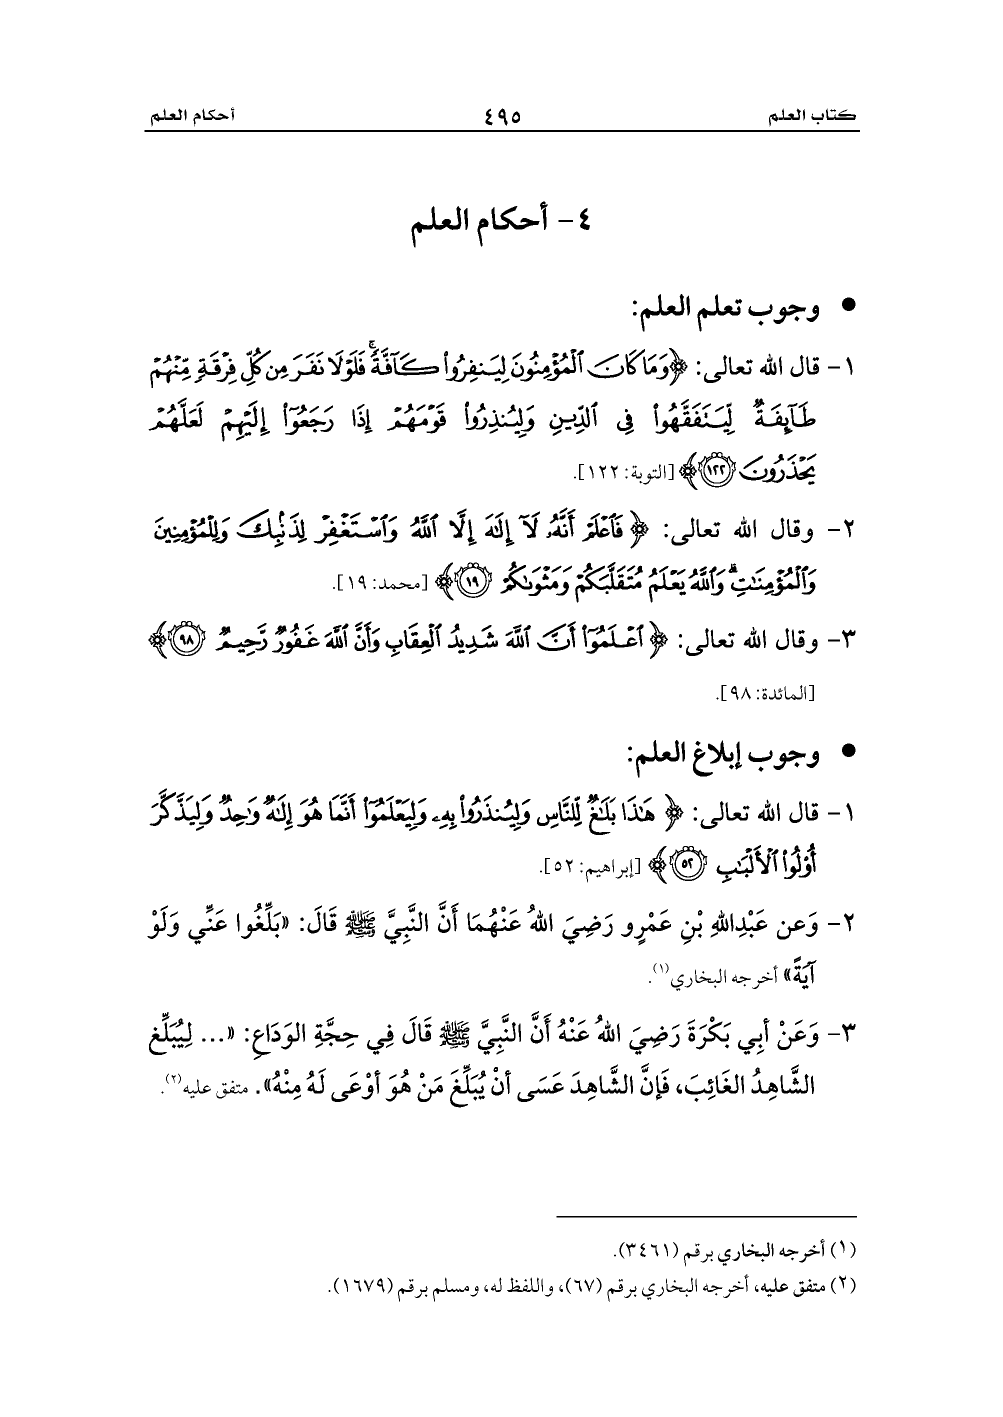 كتاب العلم ٤٩٥ أحكام العلم
٤- أحكام العلم
● وجوب تعلم العلم:
١- قال الله تعالى: ﴿وَمَا كَانَ ٱلْمُؤْمِنُونَ لِيَنفِرُوا۟ كَآفَّةً ۚ فَلَوْلَا نَفَرَ مِن كُلِّ فِرْقَةٍ مِّنْهُمْ
طَآئِفَةٌ لِّيَتَفَقَّهُوا۟ فِى ٱلدِّينِ وَلِيُنذِرُوا۟ قَوْمَهُمْ إِذَا رَجَعُوٓا۟ إِلَيْهِمْ لَعَلَّهُمْ
يَحْذَرُونَ ١٢٢﴾ [التوبة: ١٢٢].
٢- وقال الله تعالى: ﴿فَٱعْلَمْ أَنَّهُۥ لَآ إِلَٰهَ إِلَّا ٱللَّهُ وَٱسْتَغْفِرْ لِذَنۢبِكَ وَلِلْمُؤْمِنِينَ
وَٱلْمُؤْمِنَٰتِ ۗ وَٱللَّهُ يَعْلَمُ مُتَقَلَّبَكُمْ وَمَثْوَىٰكُمْ ١٩﴾ [محمد: ١٩].
٣- وقال الله تعالى: ﴿ٱعْلَمُوٓا۟ أَنَّ ٱللَّهَ شَدِيدُ ٱلْعِقَابِ وَأَنَّ ٱللَّهَ غَفُورٌ رَّحِيمٌ ٩٨﴾
[المائدة: ٩٨].
● وجوب إبلاغ العلم:
١- قال الله تعالى: ﴿هَٰذَا بَلَٰغٌ لِّلنَّاسِ وَلِيُنذَرُوا۟ بِهِۦ وَلِيَعْلَمُوٓا۟ أَنَّمَا هُوَ إِلَٰهٌ وَٰحِدٌ وَلِيَذَّكَّرَ
أُو۟لُوا۟ ٱلْأَلْبَٰبِ ٥٢﴾ [إبراهيم: ٥٢].
٢- وَعن عَبْدِاللهِ بْنِ عَمْرٍو رَضِيَ اللهُ عَنْهُمَا أَنَّ النَّبِيَّ ﷺ قَالَ: «بَلِّغُوا عَنِّي وَلَوْ
آيَةً» أخرجه البخاري(١).
٣- وَعَنْ أبِي بَكْرَةَ رَضِيَ اللهُ عَنْهُ أَنَّ النَّبِيَّ ﷺ قَالَ فِي حِجَّةِ الوَدَاعِ: «... لِيُبَلِّغ
الشَّاهِدُ الغَائِبَ، فَإنَّ الشَّاهِدَ عَسَى أنْ يُبَلِّغَ مَنْ هُوَ أوْعَى لَهُ مِنْهُ». متفق عليه(٢).
(١) أخرجه البخاري برقم (٣٤٦١).
(٢) متفق عليه، أخرجه البخاري برقم (٦٧)، واللفظ له، ومسلم برقم (١٦٧٩).